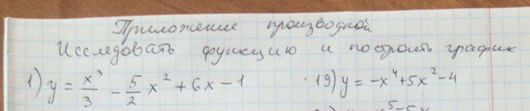 Приложение производной
Исследовать функцию и построить график
1) y = x³/3 - 5/2 x² + 6x - 1    19) y = -x⁴ + 5x² - 4